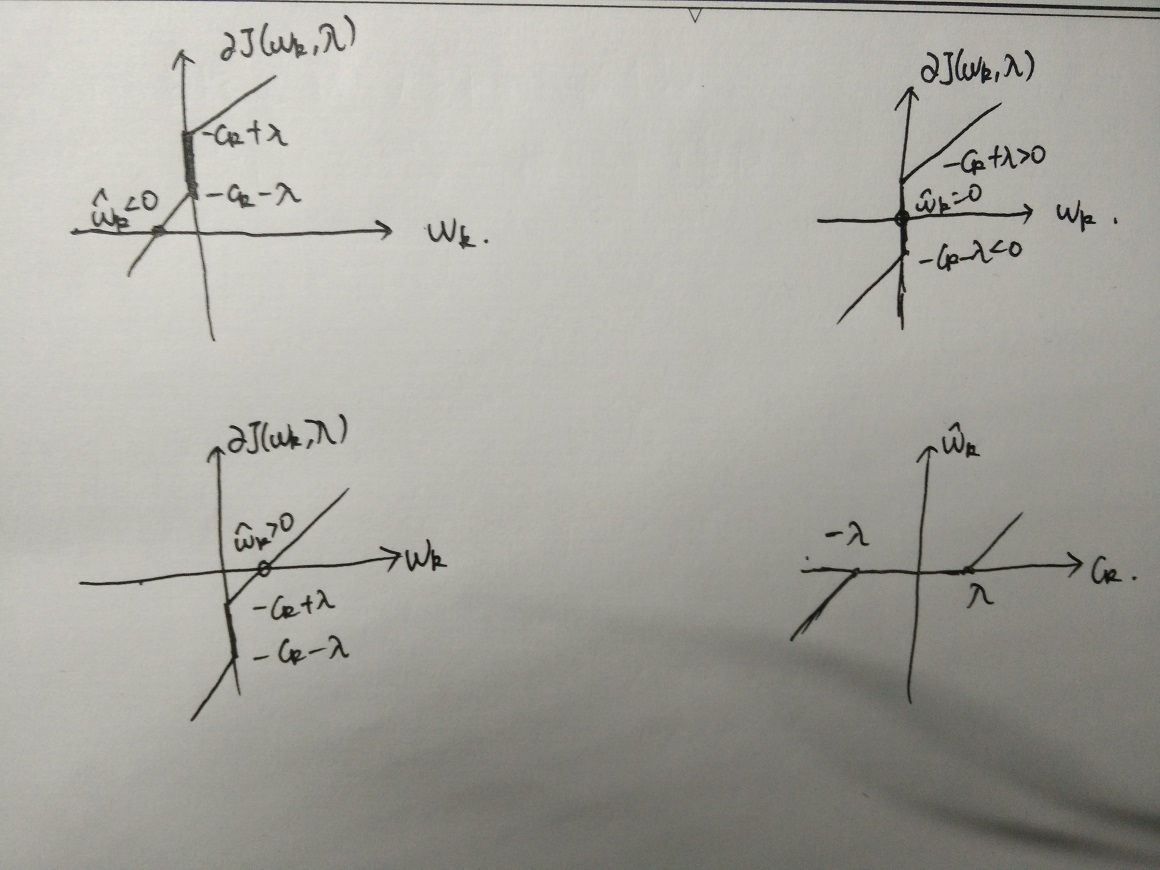 ∂J(wₖ,λ)
-cₖ+λ
-cₖ-λ
ŵₖ<0
wₖ.
∂J(wₖ,λ)
-cₖ+λ>0
ŵₖ=0
wₖ.
-cₖ-λ<0
∂J(wₖ,λ)
ŵₖ>0
wₖ
-cₖ+λ
-cₖ-λ
ŵₖ
-λ
cₖ.
λ